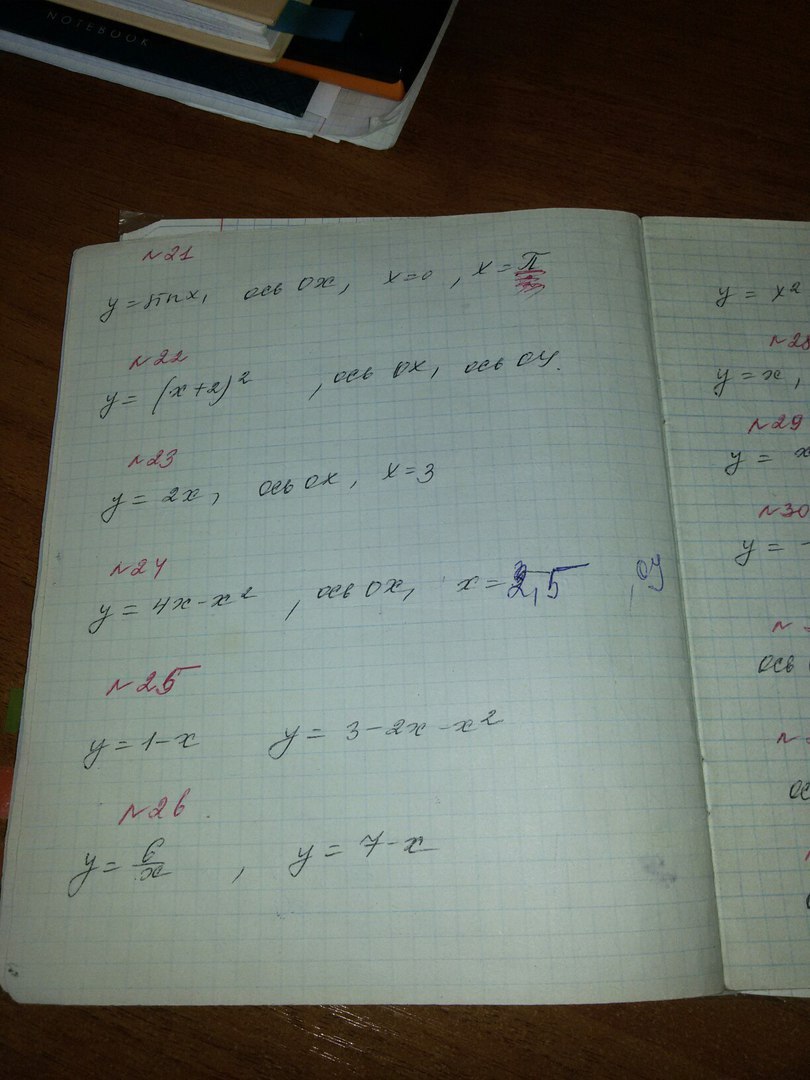 NOTEBOOK
№21
y = sin x, ось OX, x=0, x=π
№22
y = (x+2)², ось OX, ось OY.
№23
y = 2x, ось OX, x=3
№24
y = 4x-x², ось OX, x= 2,5, OY
№25
y = 1-x y = 3-2x-x²
№26
y = 6/x, y = 7-x
y = x²
№28
y = x,
№29
y = x
№30
y = -
№
ось
№
ос